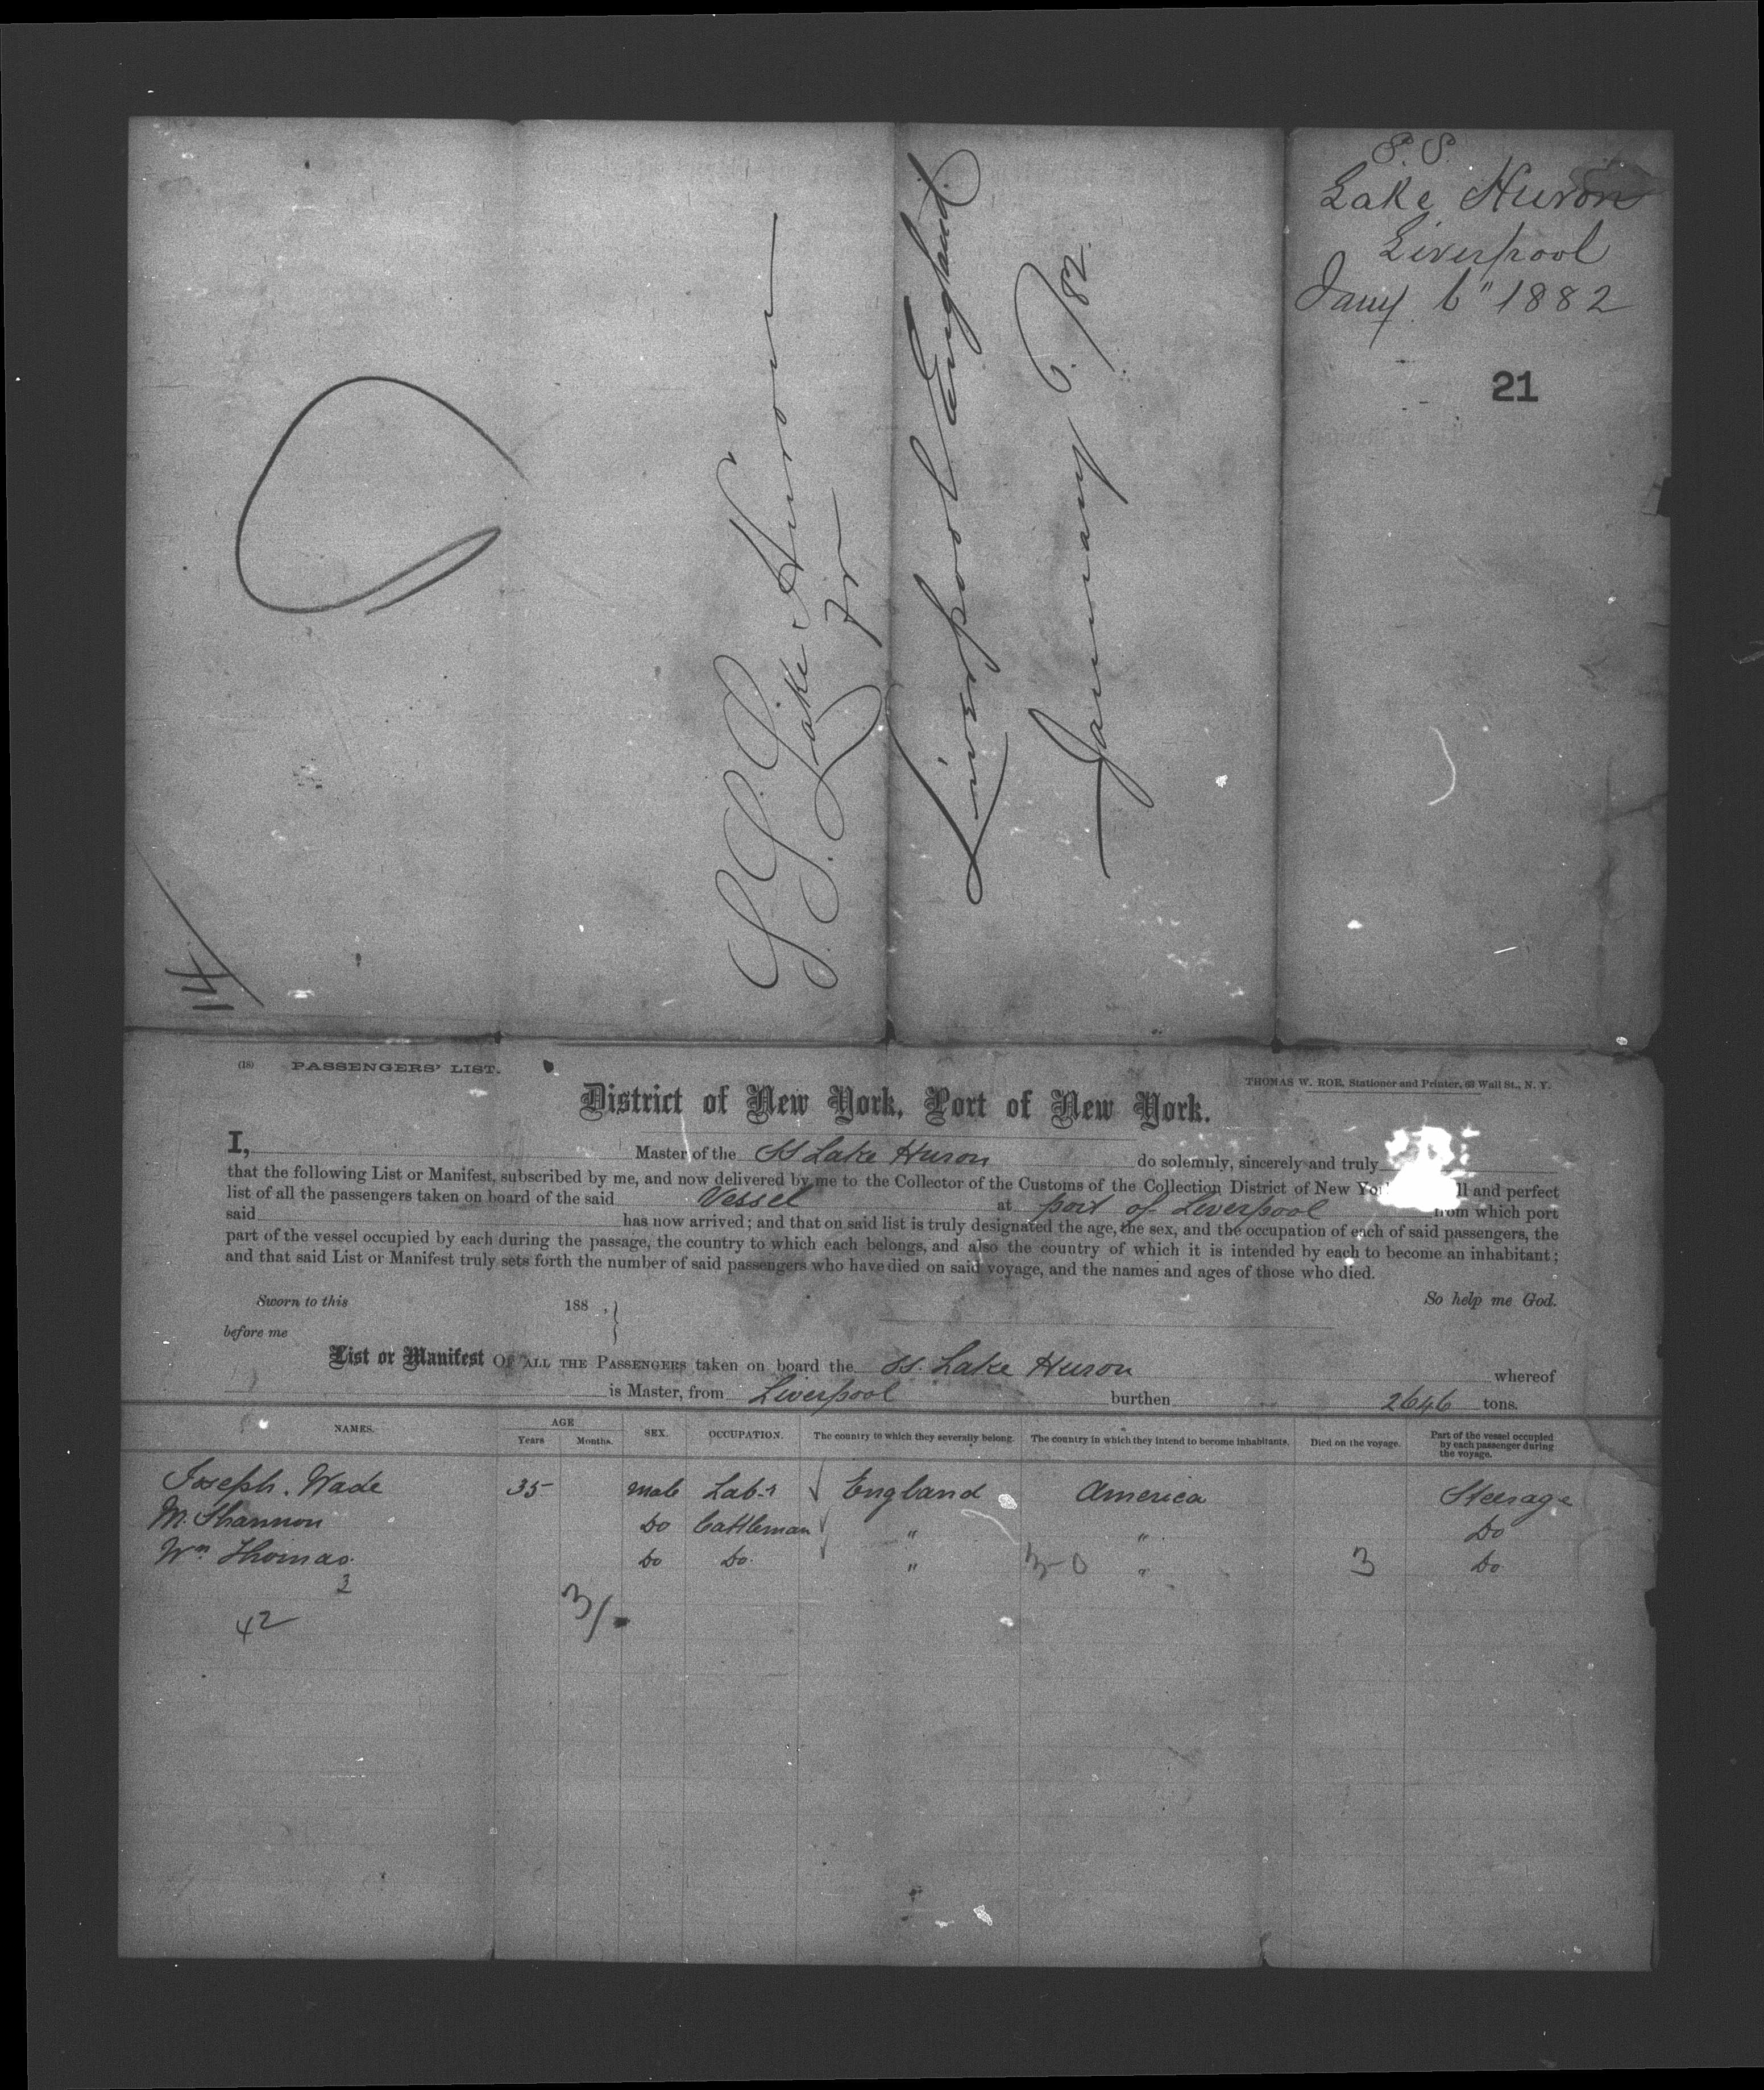 S.S.
Lake Huron
Liverpool
Jany. 6" 1882
21
S.S. Lake Huron
Fr
Liverpool England
January 6. /82.
14
(18) PASSENGERS' LIST.
THOMAS W. ROE, Stationer and Printer, 63 Wall St., N. Y.
District of New York, Port of New York.
I, Master of the SS Lake Huron do solemnly, sincerely and truly
that the following List or Manifest, subscribed by me, and now delivered by me to the Collector of the Customs of the Collection District of New York ll and perfect
list of all the passengers taken on board of the said Vessel at port of Liverpool from which port
said has now arrived; and that on said list is truly designated the age, the sex, and the occupation of each of said passengers, the
part of the vessel occupied by each during the passage, the country to which each belongs, and also the country of which it is intended by each to become an inhabitant;
and that said List or Manifest truly sets forth the number of said passengers who have died on said voyage, and the names and ages of those who died.
Sworn to this 188 , So help me God.
before me
List or Manifest OF ALL THE PASSENGERS taken on board the SS. Lake Huron whereof
is Master, from Liverpool burthen 2646 tons.
NAMES. AGE Years Months. SEX. OCCUPATION. The country to which they severally belong. The country in which they intend to become inhabitants. Died on the voyage. Part of the vessel occupied by each passenger during the voyage.
Joseph. Wade 35 male Lab-r England America Steerage
M. Shannon Do Cattleman " " Do
Wm Thomas. Do Do. " 3-0 " 3 Do
3
42 3/